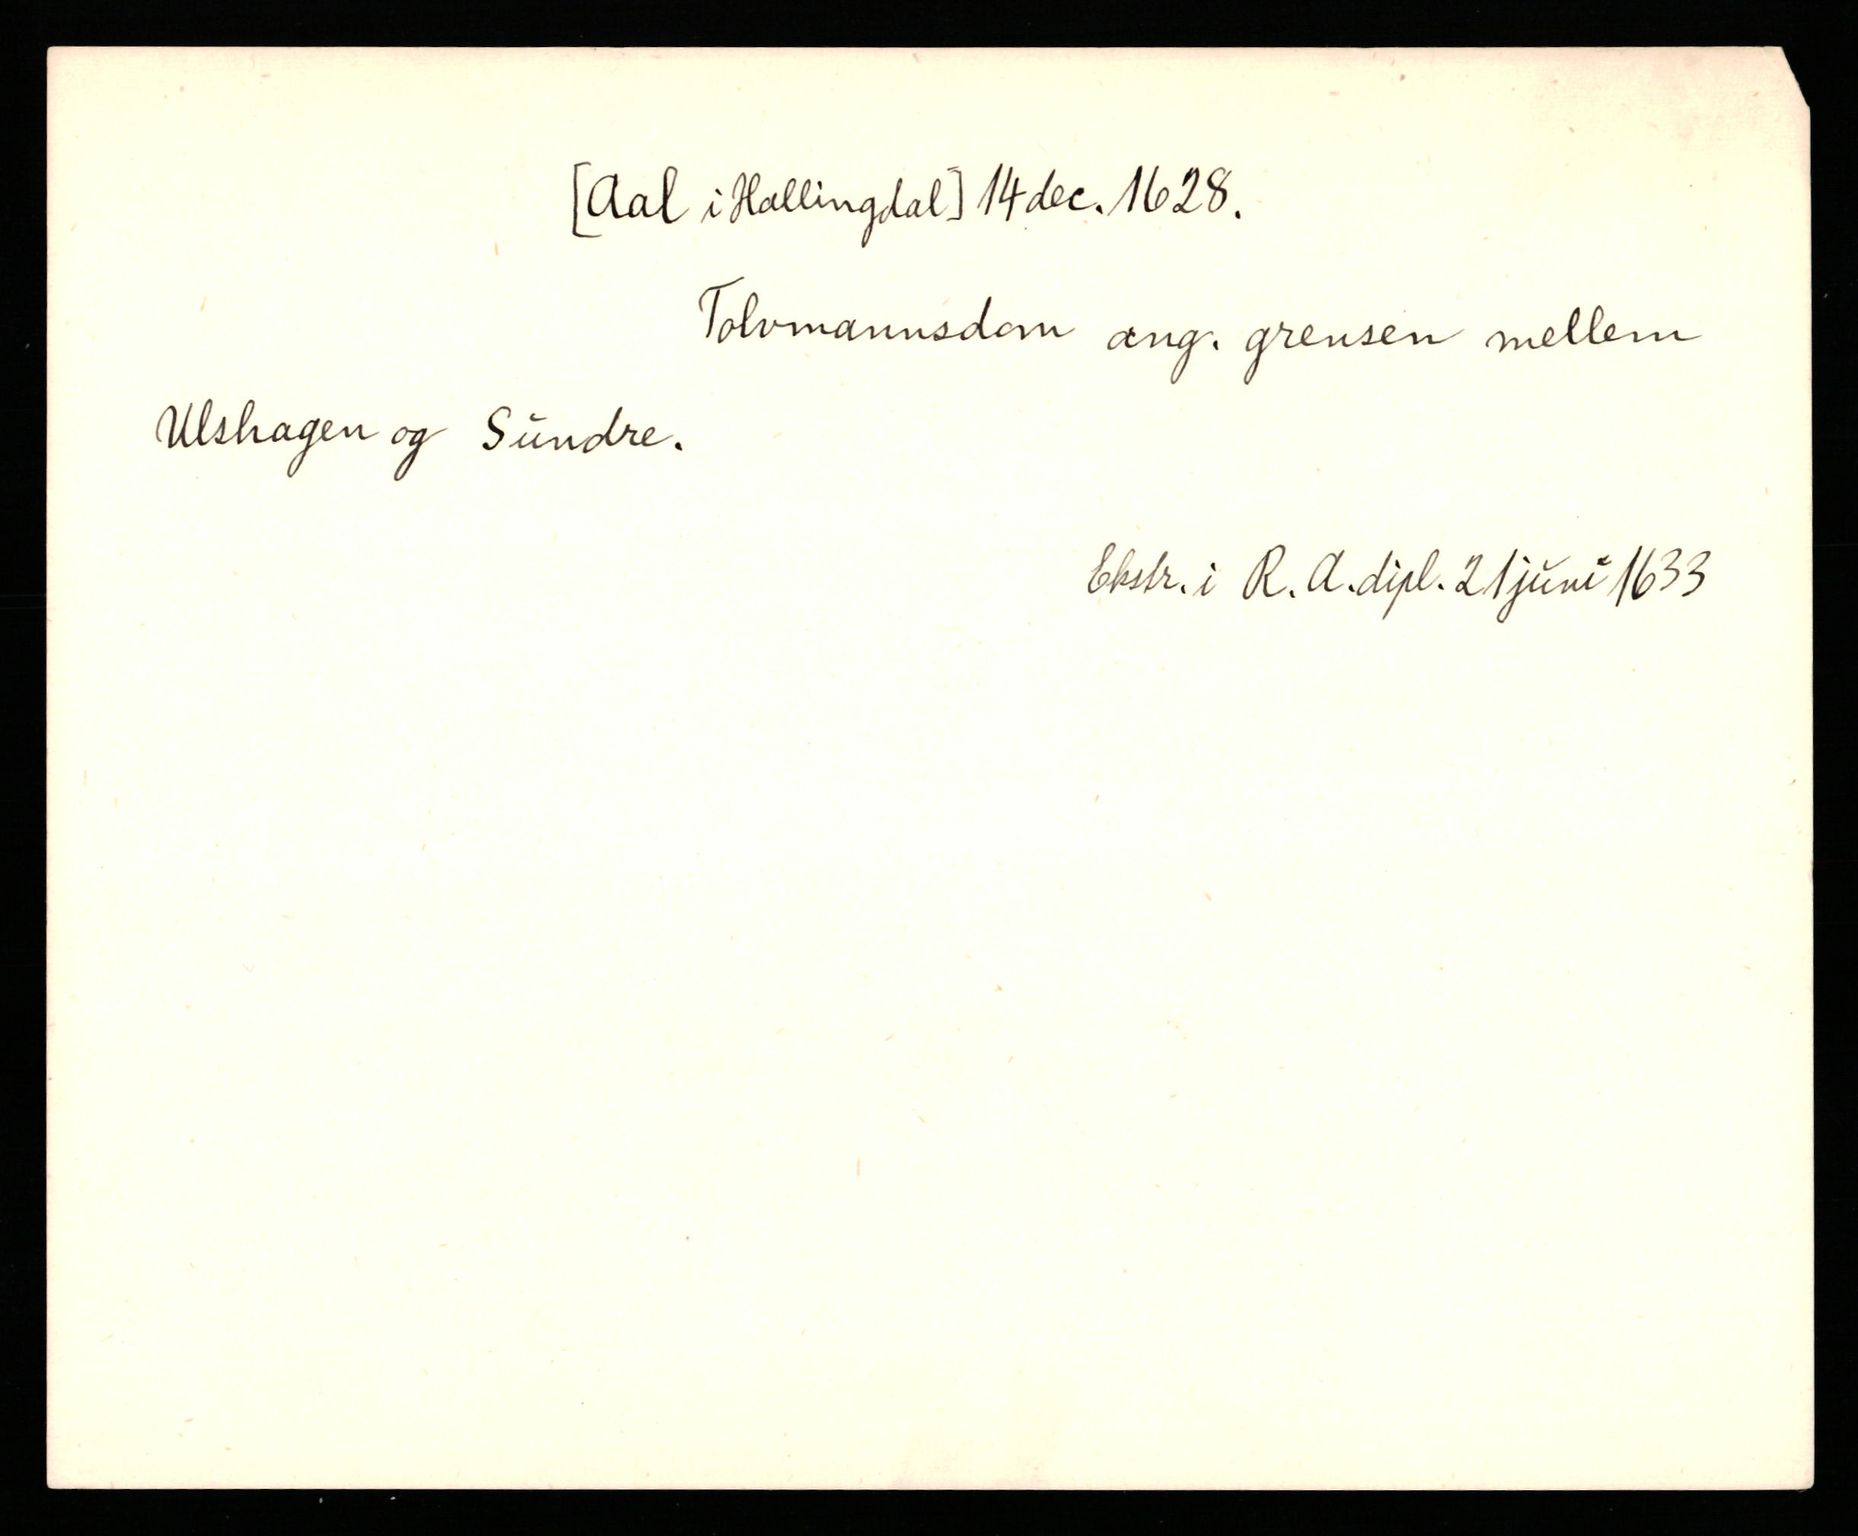 [Aal i Hallingdal] 14 dec. 1628.
Tolvmannsdom ang. grensen mellem
Ulshagen og Sundre.
Ekstr. i R. A. dipl. 21 juni 1633